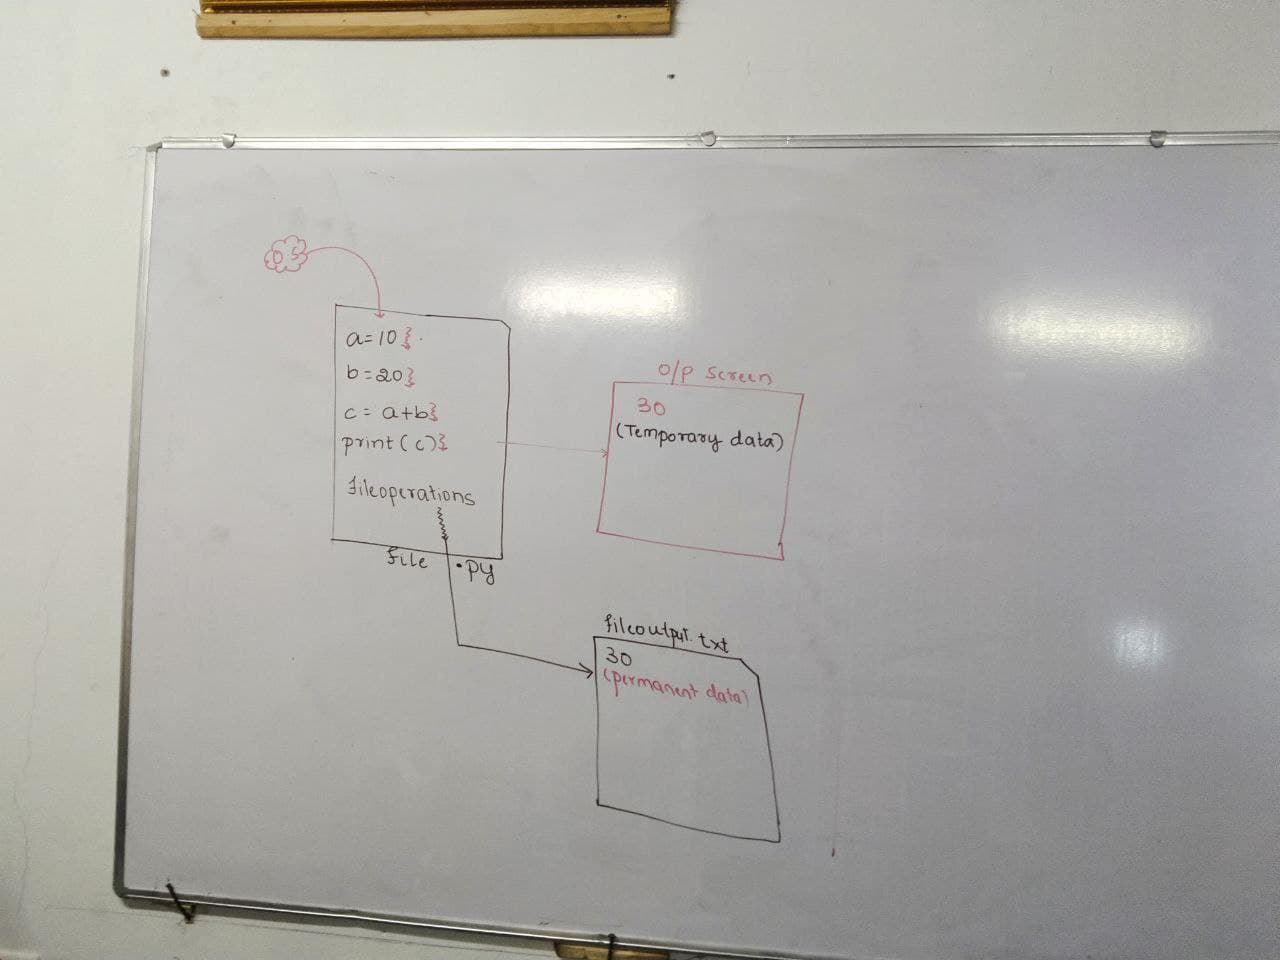 OS
a=10}
b=20}
c = a+b}
print(c)}
fileoperations
file .py
O/P Screen
30
(Temporary data)
fileoutput.txt
30
(permanent data)